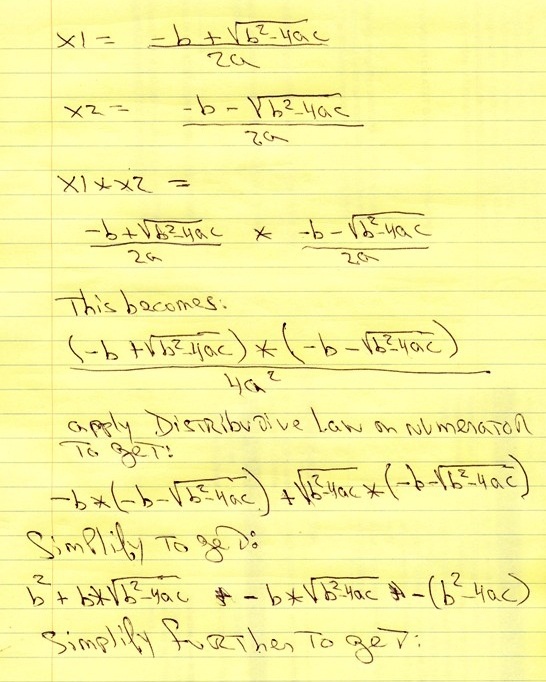 x1 = (-b + √(b²-4ac)) / 2a
x2 = (-b - √(b²-4ac)) / 2a
x1 * x2 =
(-b + √(b²-4ac)) / 2a * (-b - √(b²-4ac)) / 2a
This becomes:
((-b + √(b²-4ac)) * (-b - √(b²-4ac))) / 4a²
apply Distributive Law on numerator
To get:
-b * (-b - √(b²-4ac)) + √(b²-4ac) * (-b - √(b²-4ac))
Simplify To get:
b² + b*√(b²-4ac) - b*√(b²-4ac) - (b²-4ac)
Simplify further To get: